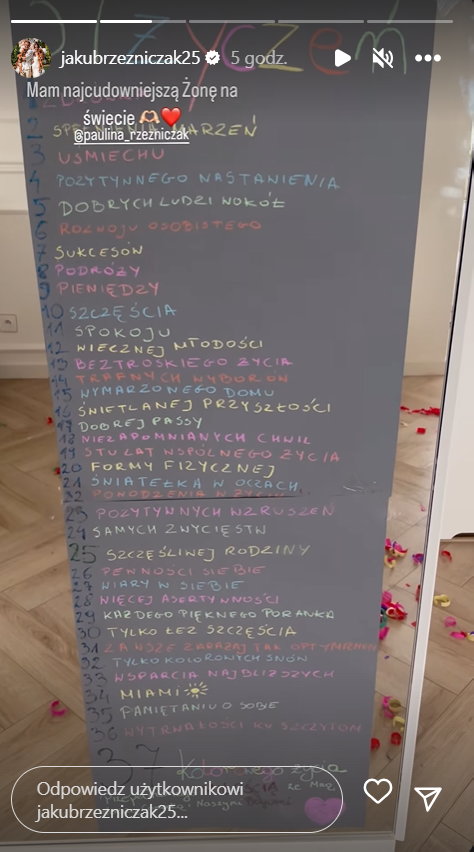 jakubrzezniczak25 5 godz.
37 życzeń
Mam najcudowniejszą Żonę na
świecie
@paulina_rzezniczak
1 ZDROWIA
2 SPEŁNIENIA MARZEŃ
3 UŚMIECHU
4 POZYTYWNEGO NASTAWIENIA
5 DOBRYCH LUDZI WOKÓŁ
6 ROZWOJU OSOBISTEGO
7 SUKCESÓW
8 PODRÓŻY
9 PIENIĘDZY
10 SZCZĘŚCIA
11 SPOKOJU
12 WIECZNEJ MŁODOŚCI
13 BEZTROSKIEGO ŻYCIA
14 TRAFNYCH WYBORÓW
15 WYMARZONEGO DOMU
16 ŚWIETLANEJ PRZYSZŁOŚCI
17 DOBREJ PASSY
18 NIEZAPOMNIANYCH CHWIL
19 STU LAT WSPÓLNEGO ŻYCIA
20 FORMY FIZYCZNEJ
21 ŚWIATEŁKA W OCZACH
22 POWODZENIA W ŻYCIU
23 POZYTYWNYCH WZRUSZEŃ
24 SAMYCH ZWYCIĘSTW
25 SZCZĘŚLIWEJ RODZINY
26 PEWNOŚCI SIEBIE
27 WIARY W SIEBIE
28 WIĘCEJ ASERTYWNOŚCI
29 KAŻDEGO PIĘKNEGO PORANKA
30 TYLKO ŁEZ SZCZĘŚCIA
31 ZAWSZE ZARAŻAJ TAK OPTYMIZMEM
32 TYLKO KOLOROWYCH SNÓW
33 WSPARCIA NAJBLIŻSZYCH
34 MIAMI
35 PAMIĘTANIU O SOBIE
36 WYTRWAŁOŚCI KU SZCZYTOM
37 Kolorowego życia
Odpowiedz użytkownikowi
jakubrzezniczak25...